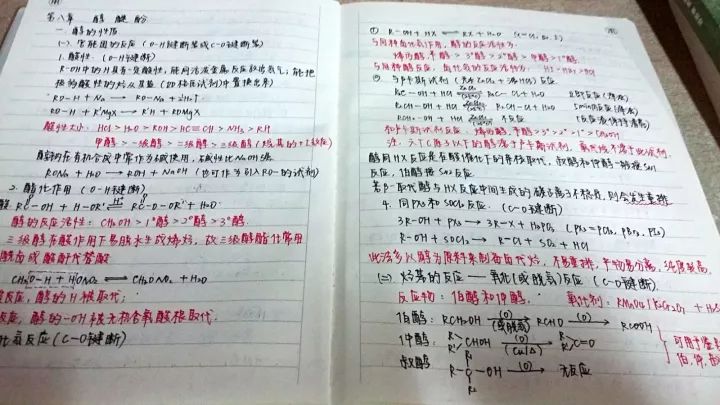 第八章 醇 醚 酚
一. 醇的性质
(一). 官能团的反应 (O-H键断裂或C-O键断裂)
1. 酸性. (O-H键断)
R-OH中的H具有一定酸性, 能同活泼金属反应放出氢气; 能把
换
RO-H + Na → RO-Na + ½H₂↑
RO-H + R'MgX → R'H + ROMgX
酸性大小: HCl > H₂O > ROH > HC≡CH > NH₃ > RH
甲醇 > 一级醇 > 二级醇 > 三级醇
醇钠在有机合成中常作为碱使用, 碱性比NaOH强
RONa + H₂O → ROH + NaOH (也可作为引入RO-的试剂)
2. 酯化作用 (O-H键断)
+ H-OR' ⇌ + H₂O
醇的反应活性: CH₃OH > 1°醇 > 2°醇 > 3°醇.
三级醇在酸作用下易脱水生成烯烃, 故三级醇酯化常用
酰卤或酸酐代替酸
CH₃O-H + HONO₂ ⇌ CH₃ONO₂ + H₂O
反应, 醇的H被取代;
反应, 醇的-OH被无机含氧酸根取代.
反应 (C-O键断)
① R-OH + HX ⇌ RX + H₂O
与同种卤化氢作用, 醇的反应活性为:
烯丙醇, 苄醇 > 3°醇 > 2°醇 > 甲醇 > 1°醇
与同种醇反应, 卤化氢的反应活性为: HI > HBr > HCl
② 与卢卡斯试剂 (无水ZnCl₂ + 浓HCl) 反应.
R₃C-OH + HCl → R₃C-Cl + H₂O 立即反应 (浑浊)
R₂CH-OH + HCl → R₂CH-Cl + H₂O 5min反应 (浑浊)
RCH₂-OH + HCl → 不反应
和卢卡斯试剂反应: 烯丙醇, 苄醇 > 3° > 2° > 1° > CH₃OH
注: 六个C原子以下的醇溶于卢卡斯试剂, 氯代烃不溶于此试剂.
醇同HX反应是在酸催化下的亲核取代, 叔醇和仲醇一般按SN1
反应, 伯醇按SN2反应
若β-取代醇与HX反应中间生成的碳正离子不稳定, 则会发生重排
4. 同PX₃和SOCl₂反应. (C-O键断)
3R-OH + PX₃ → 3R-X + H₃PO₃ (PX₃ = PCl₃, PBr₃, PI₃)
R-OH + SOCl₂ → R-Cl + SO₂ + HCl
此法多从醇为原料来制卤代烃, 不易重排, 产物易分离, 纯度较高.
(二) 烃基的反应 — 氧化(或脱氢)反应 (C-O键断).
反应物: 伯醇和仲醇. 氧化剂: KMnO₄ / K₂Cr₂O₇ + H₂S
伯醇: RCH₂OH (O) (或脱氢) → RCHO (O) → RCOOH
仲醇: R R' CHOH (O) (Cu/Δ) → R R' C=O
叔醇 R- C -OH (O) → 无反应
可用于鉴
伯, 仲,